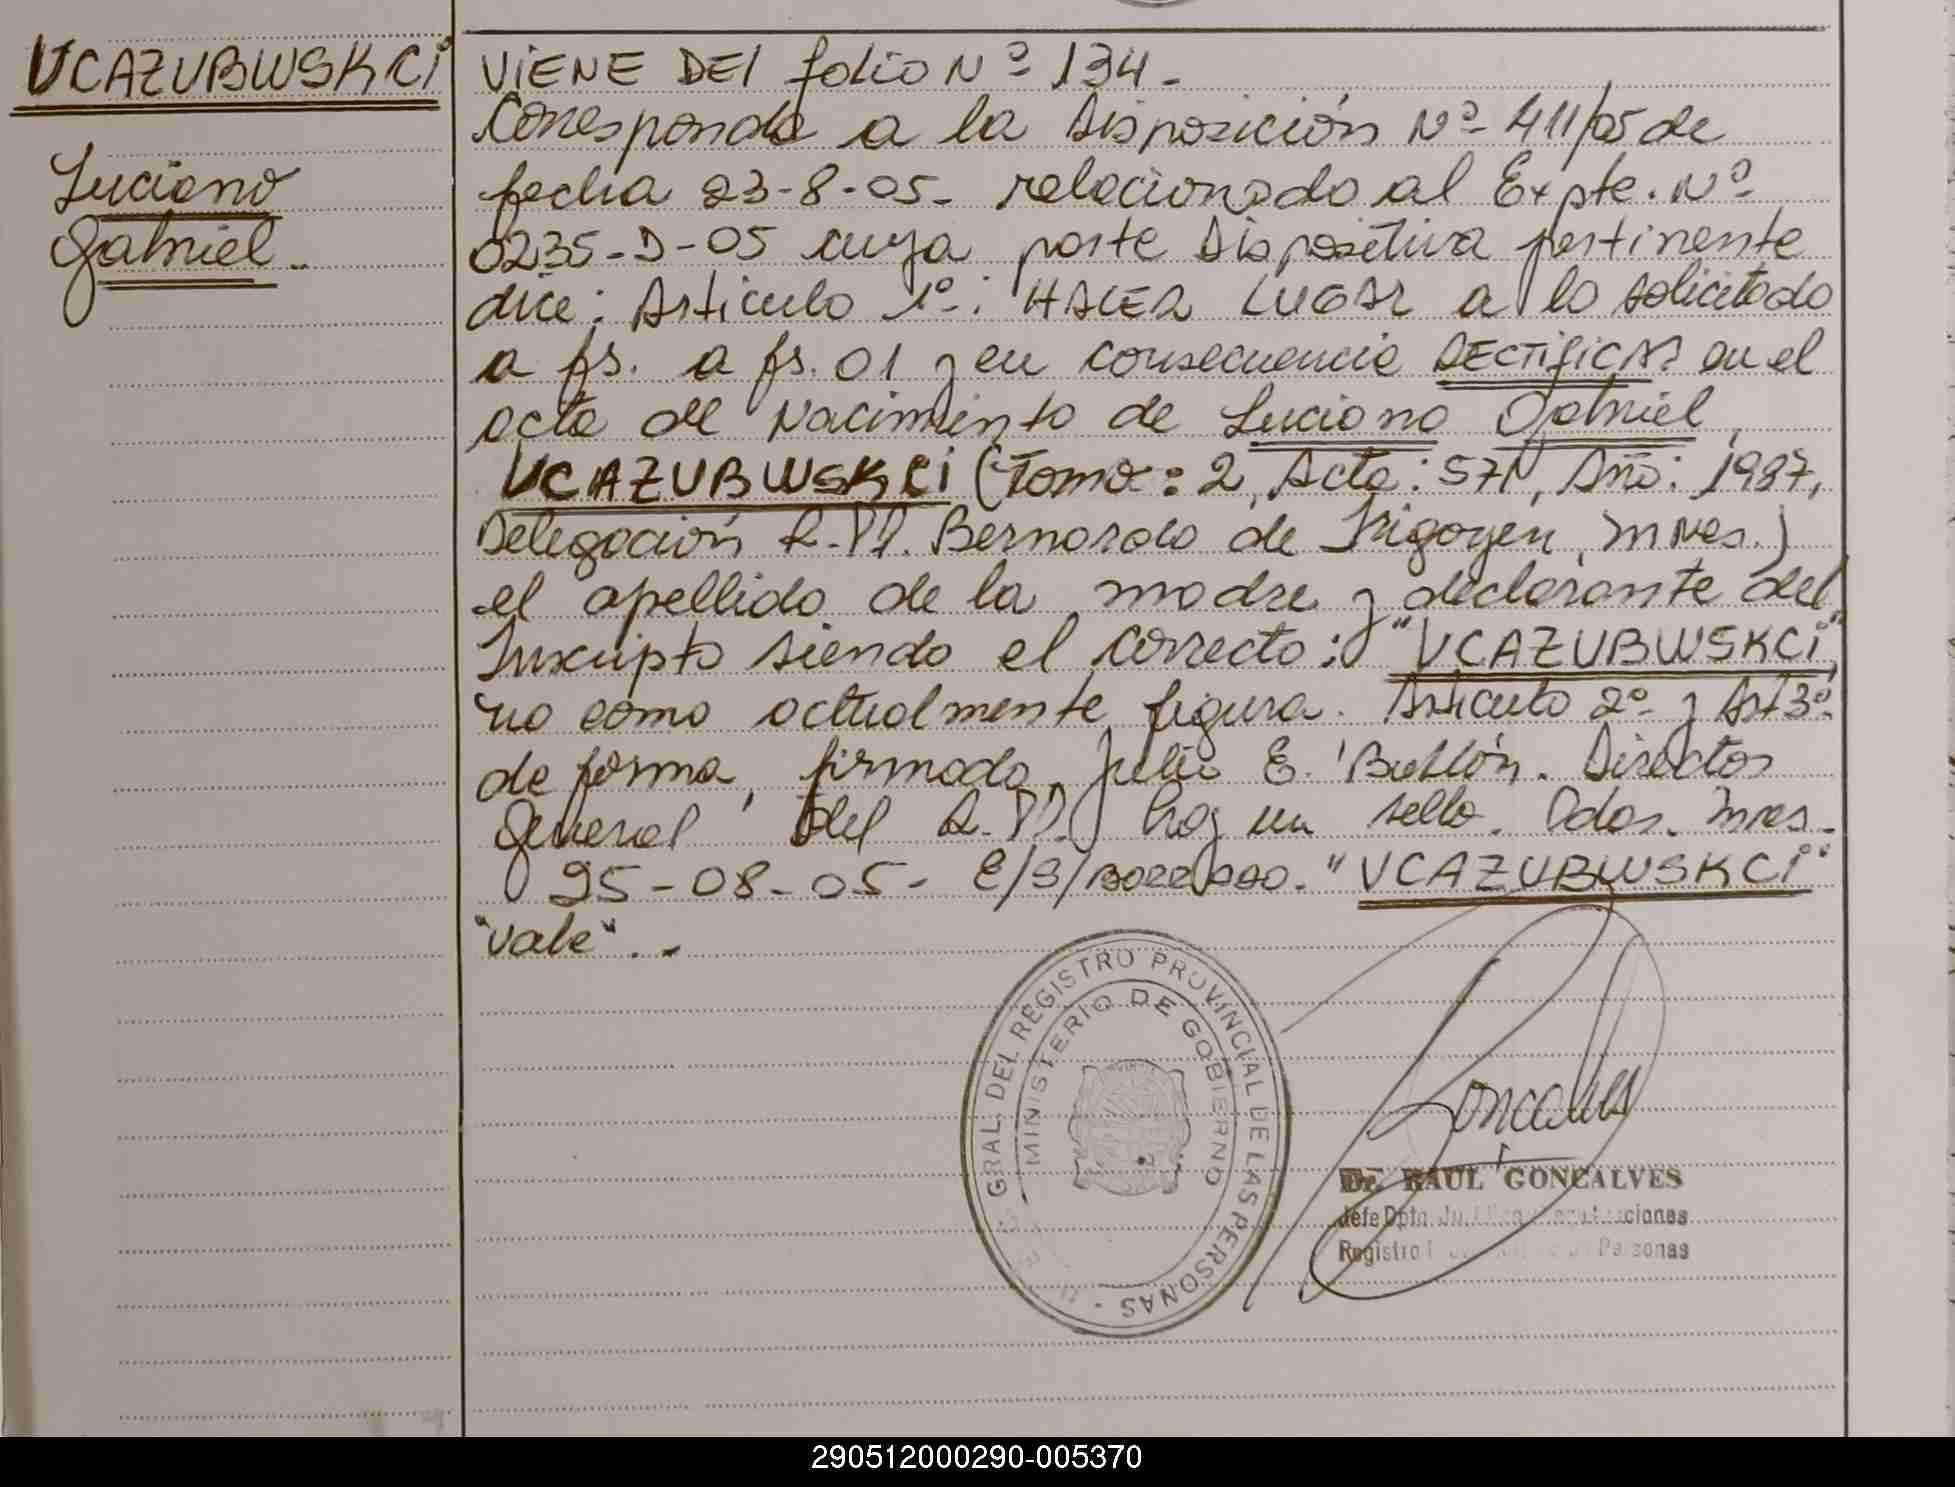 VCAZUBWSKCi
Luciano
Gabriel.-
ViENE DEl folio Nº 134.-
Corresponde a la Disposición Nº 411/05 de
fecha 23-8-05- relacionado al Expte. Nº
0235-D-05 cuya parte Dispositiva pertinente
dice: Articulo 1º: HACER LUGAR a lo solicitado
a fs. a fs. 01 y en consecuencia RECTifiCAR en el
acta de Nacimiento de Luciano Gabriel
VCAZUBWSKCi (Tomo: 2, Acta: 571, Año: 1987,
Delegación R.PP. Bernardo de Irigoyen, Mnes.)
el apellido de la madre y declarante del
Inscripto siendo el correcto: "VCAZUBWSKCi"
no como actualmente figura. Articulo 2º y Art 3º
de forma, firmado, Julio E. Director
General del R.PP. hay un sello. Pdas. Mnes.
25-08-05- E/S/ "VCAZUBWSKCi"
"Vale"..-
GRAL. DEL REGISTRO PROVINCIAL DE LAS PERSONAS
MINISTERIO DE GOBIERNO
Gonçalves
Dr. RAUL GONCALVES
Jefe Dpto
Registro Personas
290512000290-005370